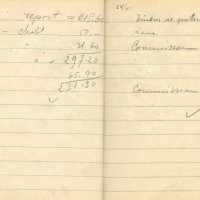 report = 215.60
- chalit 50 -
" 31.60
" " √ 297.20
65.90
231.30
√
24/11
Timbres de quittance
Commission
Commission